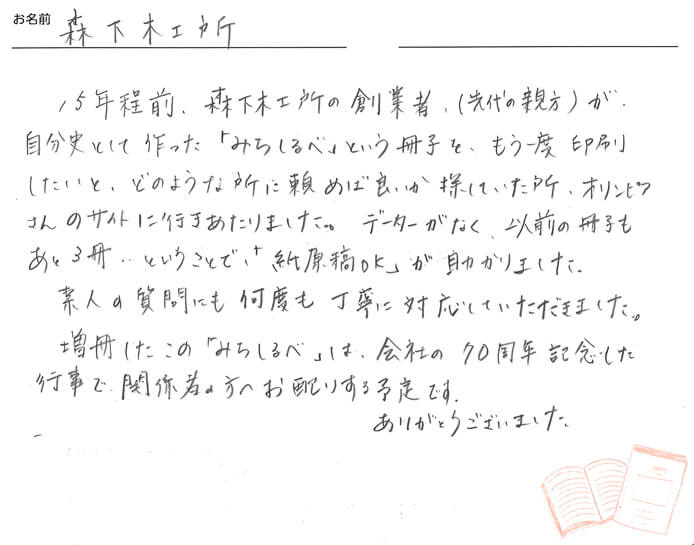 お名前 森下木工所
15年程前、森下木工所の創業者、(先代の親方)が、
自分史として作った「みちしるべ」という冊子を、もう一度印刷
したいと、どのような所に頼めば良いか探していた所、オリンピア
さんのサイトに行きあたりました。データーがなく、以前の冊子も
あと3冊…ということで、「紙原稿OK」が助かりました。
素人の質問にも何度も丁寧に対応していただきました。
増冊したこの「みちしるべ」は、会社の70周年記念した
行事で関係者の方へお配りする予定です。
ありがとうございました。